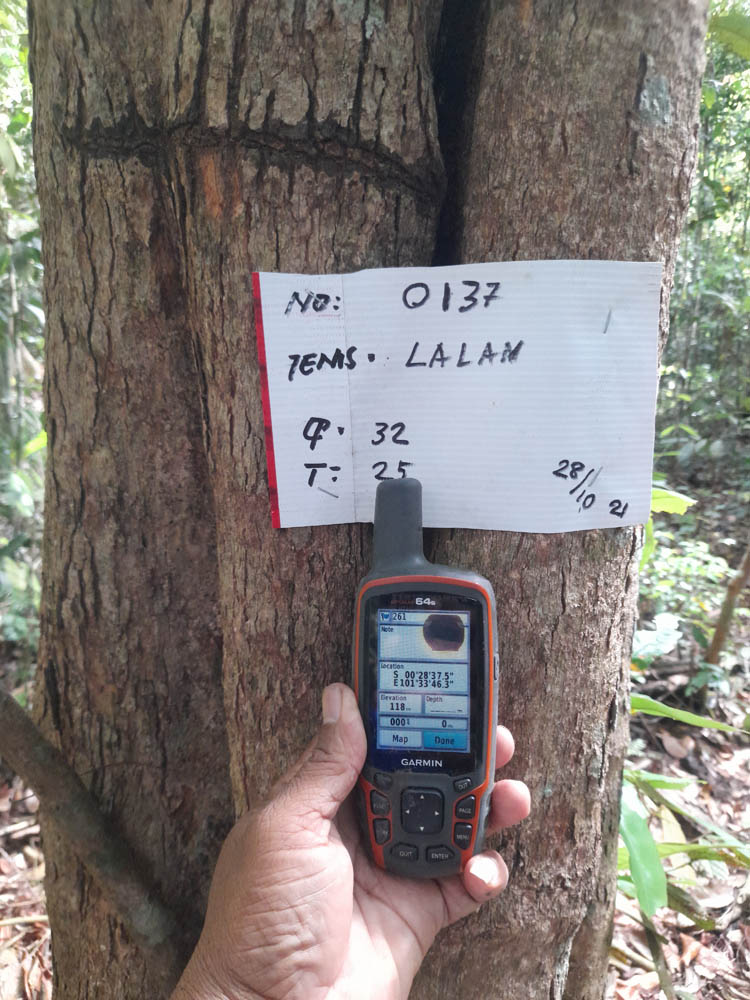 NO: 0137
JENIS. LALAN
Φ. 32
T: 25
28/10 21
64s
261
Note
Location
S 00°28'37.5"
E 101°33'46.3"
Elevation Depth
118 m
0 m
Map Done
GARMIN
OUT
PAGE
MENU
QUIT ENTER